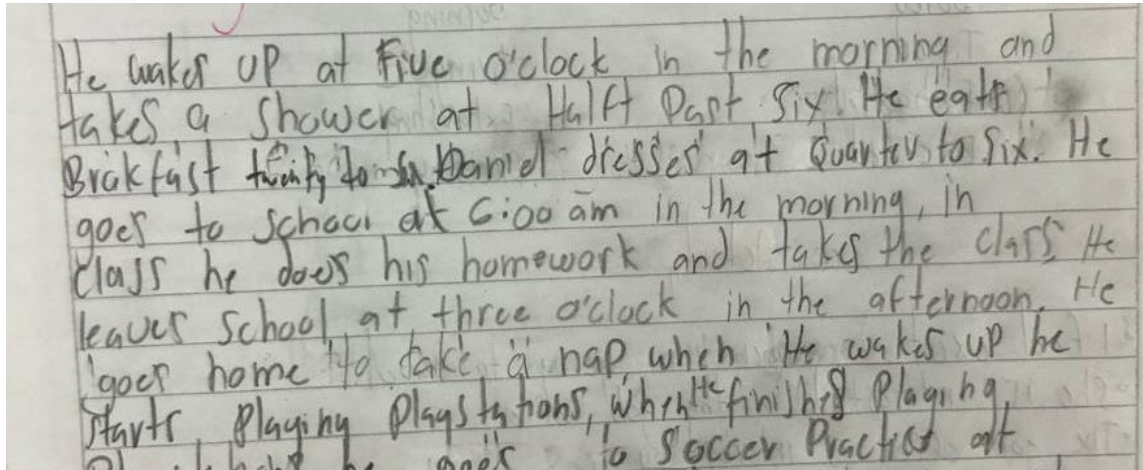 He wakes up at Five o'clock in the morning and
takes a shower at Halft Past Six. He eats
Brickfast twenty to six. Daniel dresses at Quarter to six. He
goes to school at 6:00 am in the morning, in
class he does his homework and takes the class. He
leaves school at three o'clock in the afternoon. He
goes home to take a nap, when He wakes up he
starts Playing Playstations, when He finished Playing
he goes to soccer Practice at